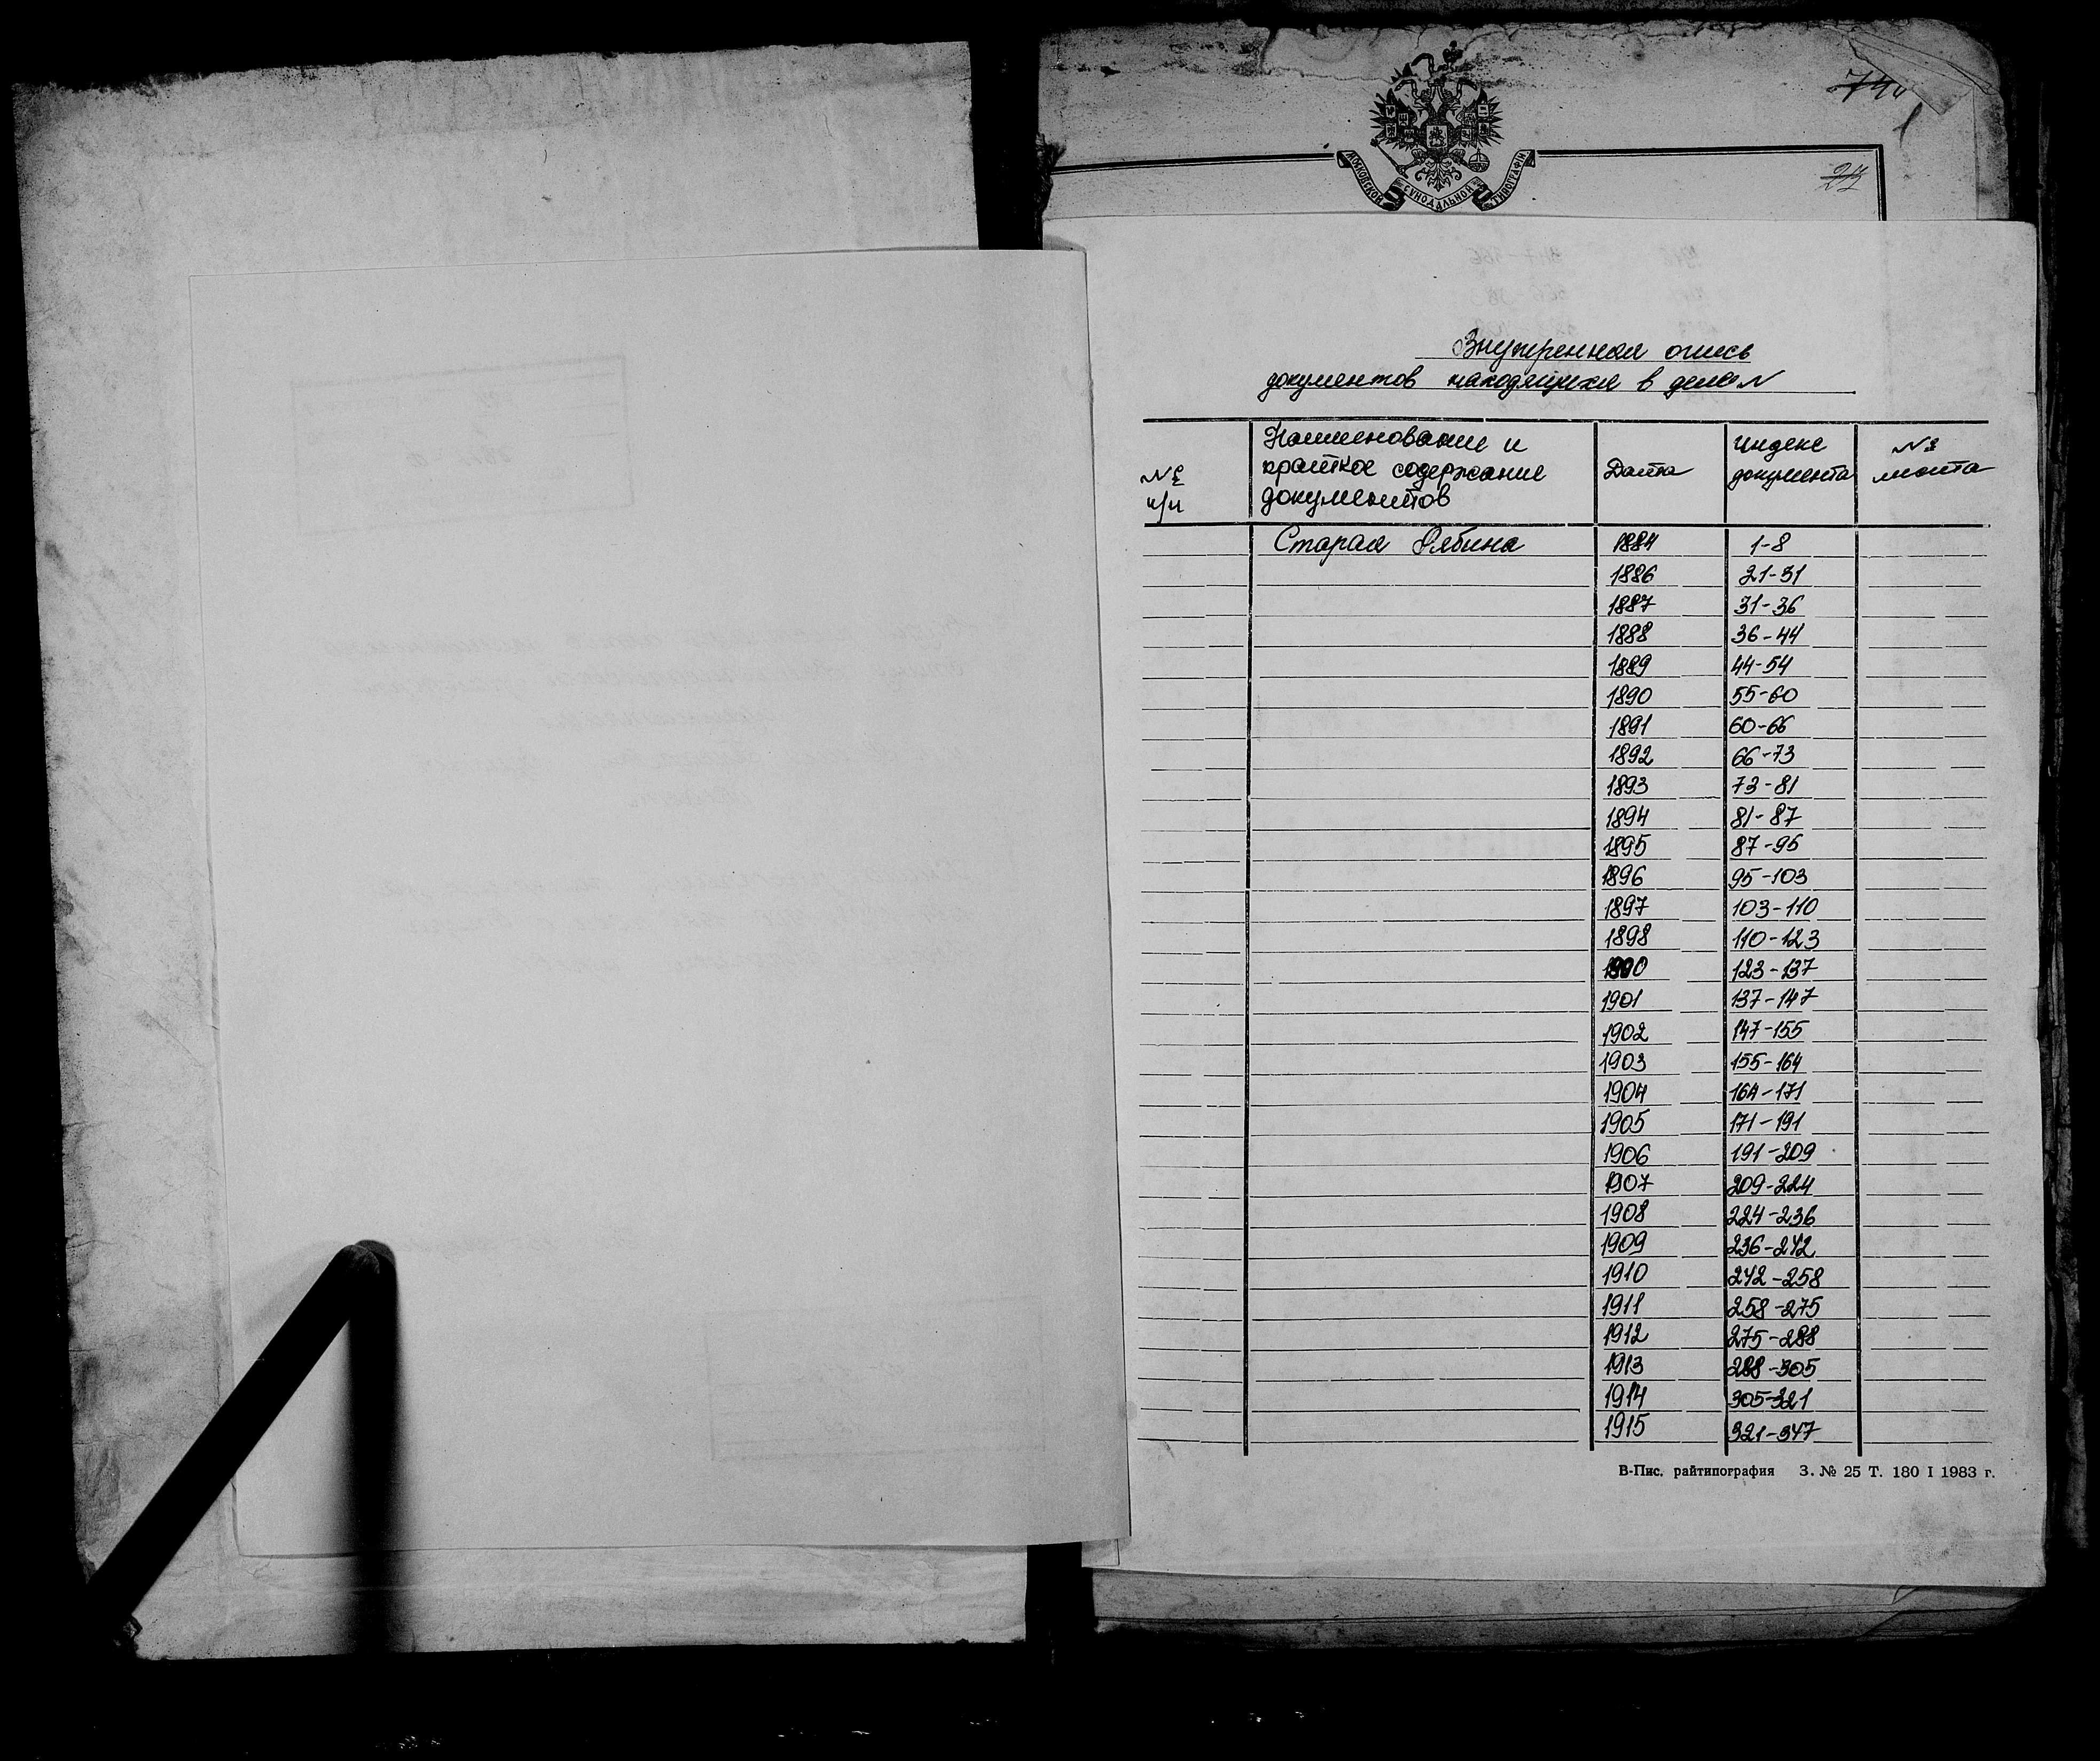 74
1
27
МОСКОВСКОЙ СѴНОДАЛЬНОЙ ТИПОГРАФIИ
Внутренная опись
документов находящихся в деле N
№ п/п
Наименование и краткое содержание документов
Дата
Индекс документа
№ листа
Старая Рябина 1884 1-8
1886 21-31
1887 31-36
1888 36-44
1889 44-54
1890 55-60
1891 60-66
1892 66-73
1893 73-81
1894 81-87
1895 87-95
1896 95-103
1897 103-110
1898 110-123
1900 123-137
1901 137-147
1902 147-155
1903 155-164
1904 164-171
1905 171-191
1906 191-209
1907 209-224
1908 224-236
1909 236-242
1910 242-258
1911 258-275
1912 275-288
1913 288-305
1914 305-321
1915 321-347
В-Пис. райтипография З. № 25 Т. 180 I 1983 г.